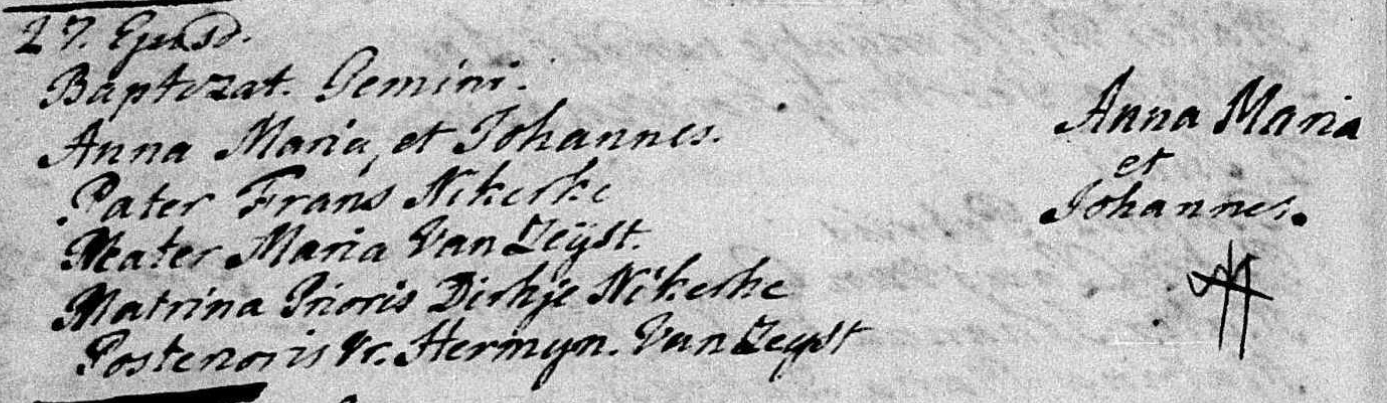 27. Ejusd.
Baptizat. Gemini.
Anna Maria, et Johannes.
Pater Frans Nikerke
Mater Maria Van Zeÿst.
Matrina Prioris Dirkje Nikerke
Posterioris Vr. Hermyn. Van Zeyst
Anna Maria
et
Johannes.